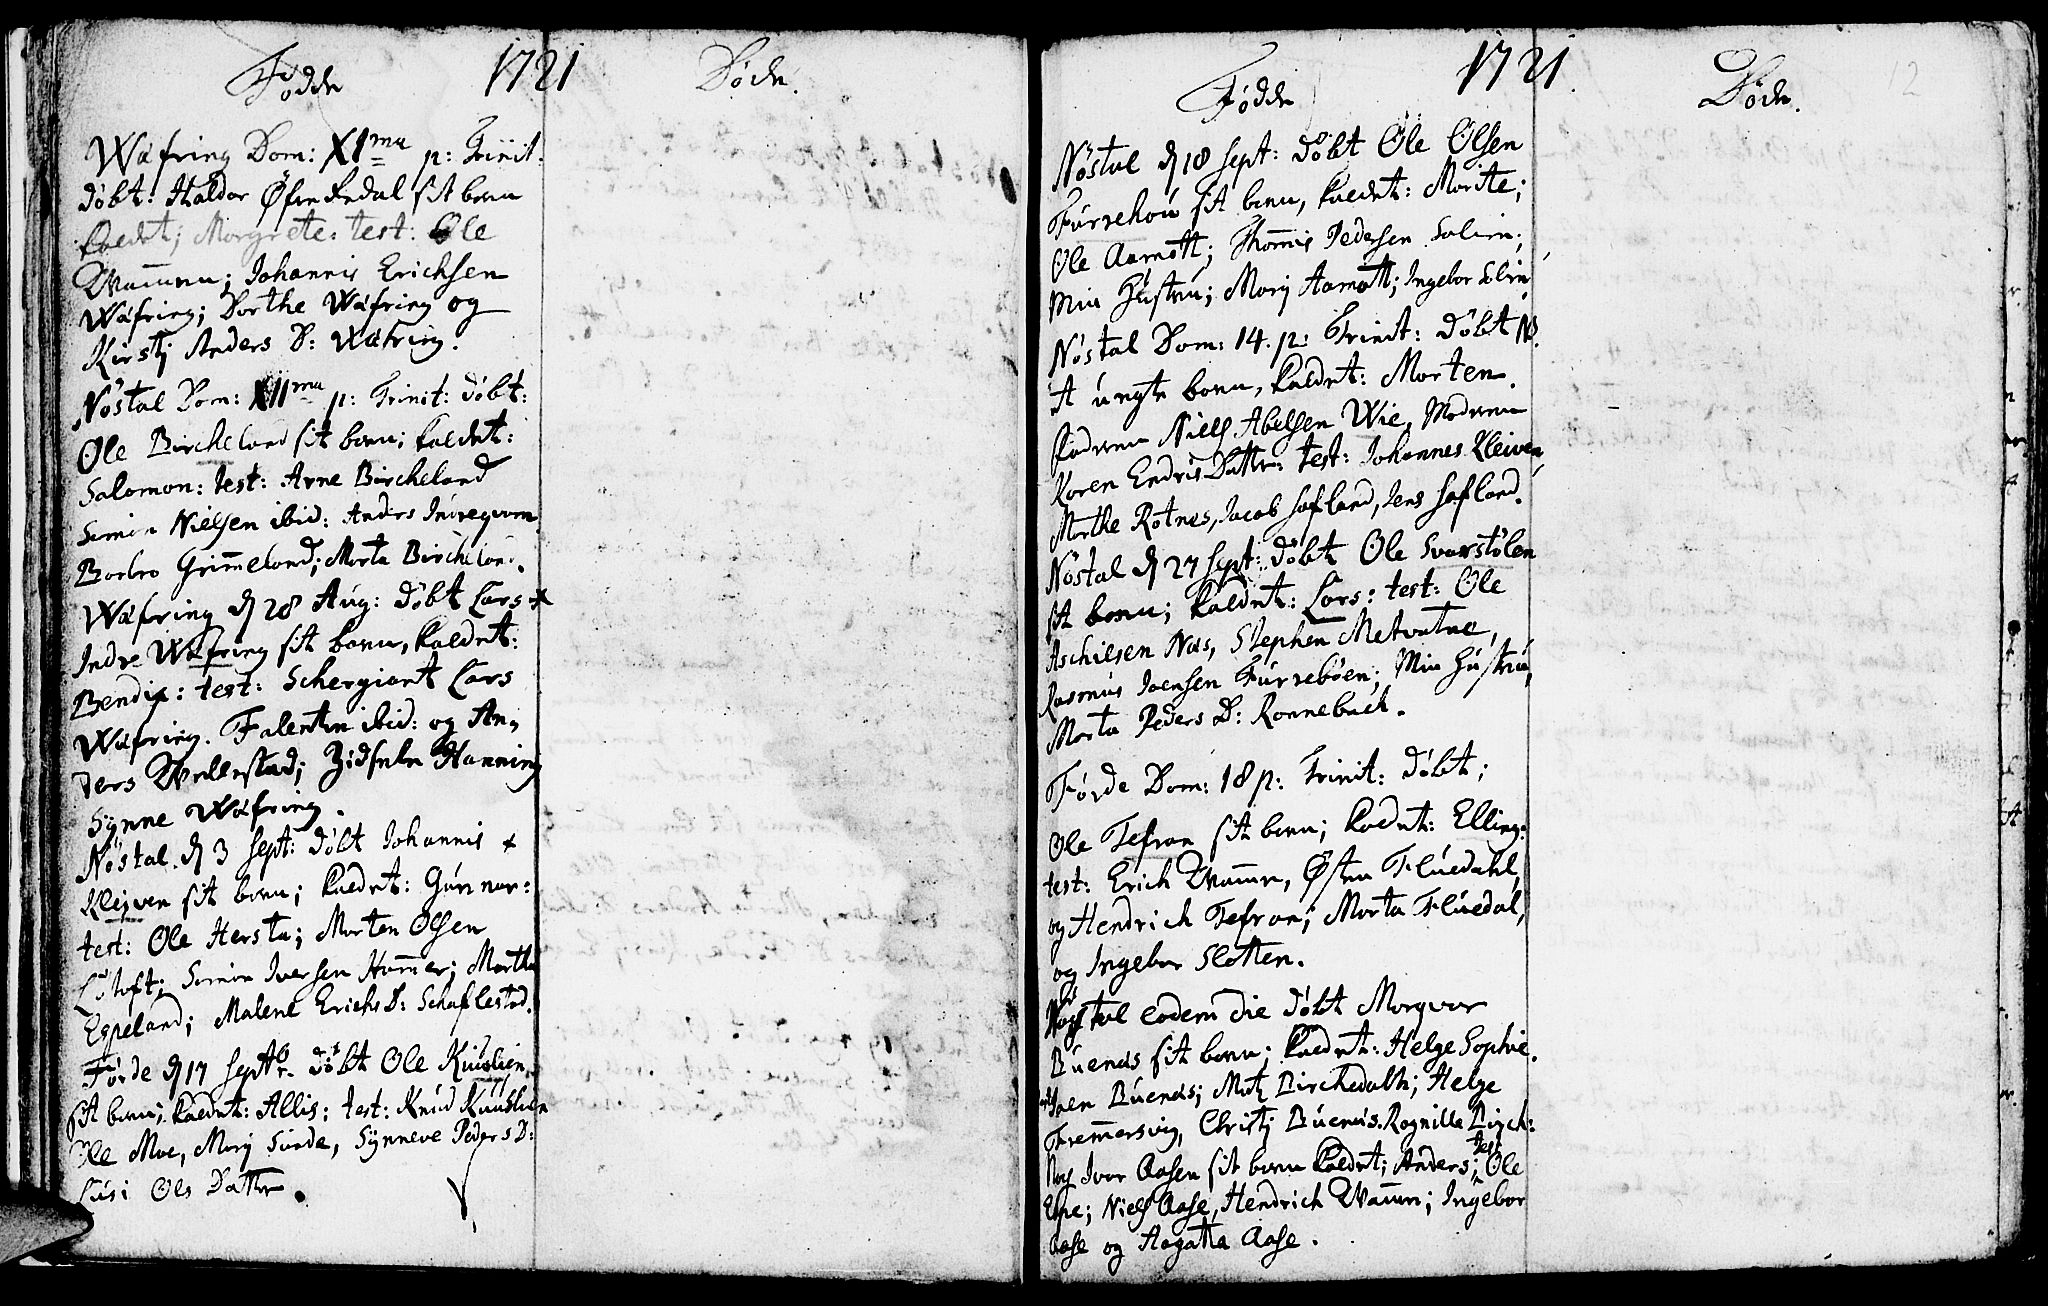 Fødde 1721 Døde.
Wæfring Dom: XI ma p: Trinit:
døbt: Haldor Øfrefedal sit barn
kaldet; Morgrete: test: Ole
Wammen; Johannis Erichsen
Wæfring; Dorthe Wæfring og
Kirstj Anders D: Wæfring.
Nøstal Dom: XII ma p: Trinit: døbt:
Ole Bircheland sit barn; kaldet:
Salomon: test: Arne Bircheland
Simon Nielsen ibid: Anders Indregvam
Barbro Grimmeland; Morta Bircheland.
Wæfring d 28 Aug: døbt Lars
Indre Wæfring sit barn, kaldet:
Bendix: test: Schergiant Lars
Wæfring. Falentin ibid: og An,
ders Wellestad; Zidsele Hanning
Synne Wæfring.
Nøstal d 3 Sept: døbt Johannis
Klejven sit barn; kaldet: Gunnar:
test: Ole Hersta; Morten Olsen
Løtoft; Simon Iversen Hammer; Morthe
Espeland; Malene Erichs D: Schaflestad.
Førde d 17 Septbr. døbt Ole Kuuslien
sit barn; kaldet: Allis; test: Knud Kuuslien
Ole Moe, Mary Sunde, Synneve Peders D:
Lusi Ols Datter.
Fødde 1721. Døde. 12
Nøstal d 18 Sept: døbt Ole Olsen
Furrehou sit barn, kaldet: Morite;
Ole Aamott; Thomis Pedersen Solien;
Min Hustru; Mary Aamott; Ingebor Slin
Nøstal Dom: 14. p: Trinit: døbt N.
et uegte barn, kaldet: Morten
faderen Niels Abelsen Wie, Moderen
Karen Endris Datter: test: Johannes Kleiven
Morthe Rotnes, Jacob Hafland, Jens Hafland.
Nøstal d 27 Sept: døbt Ole Svarstølen
sit barn; kaldet: Lars: test: Ole
Aschilsen Næs, Stephen Metvatne,
Rasmus Joensen Furrebøen; Min Hustru,
Morta Peders D: Ronneback.
Førde Dom: 18 p: Trinit: døbt;
Ole Tefran sit barn; kaldet: Elling:
test: Erich Wammen, Østen Fluedahl,
og Hendrich Tefran; Morta Fluedal,
og Ingebor Slotten.
Nøstal eodem die døbt Morgvar
Buenæs sit barn; kaldet: Helge Sophie.
Joen Buenæs; Mat Birchedalh; Helge
Fremmersvig, Christj Buenæs. Rognilla Birch:
Ivar Aasen sit barn kaldet; Anders; test Ole
Espe; Niels Aase, Hendrich Wammen; Ingebor
Aase og Aagatta Aase.